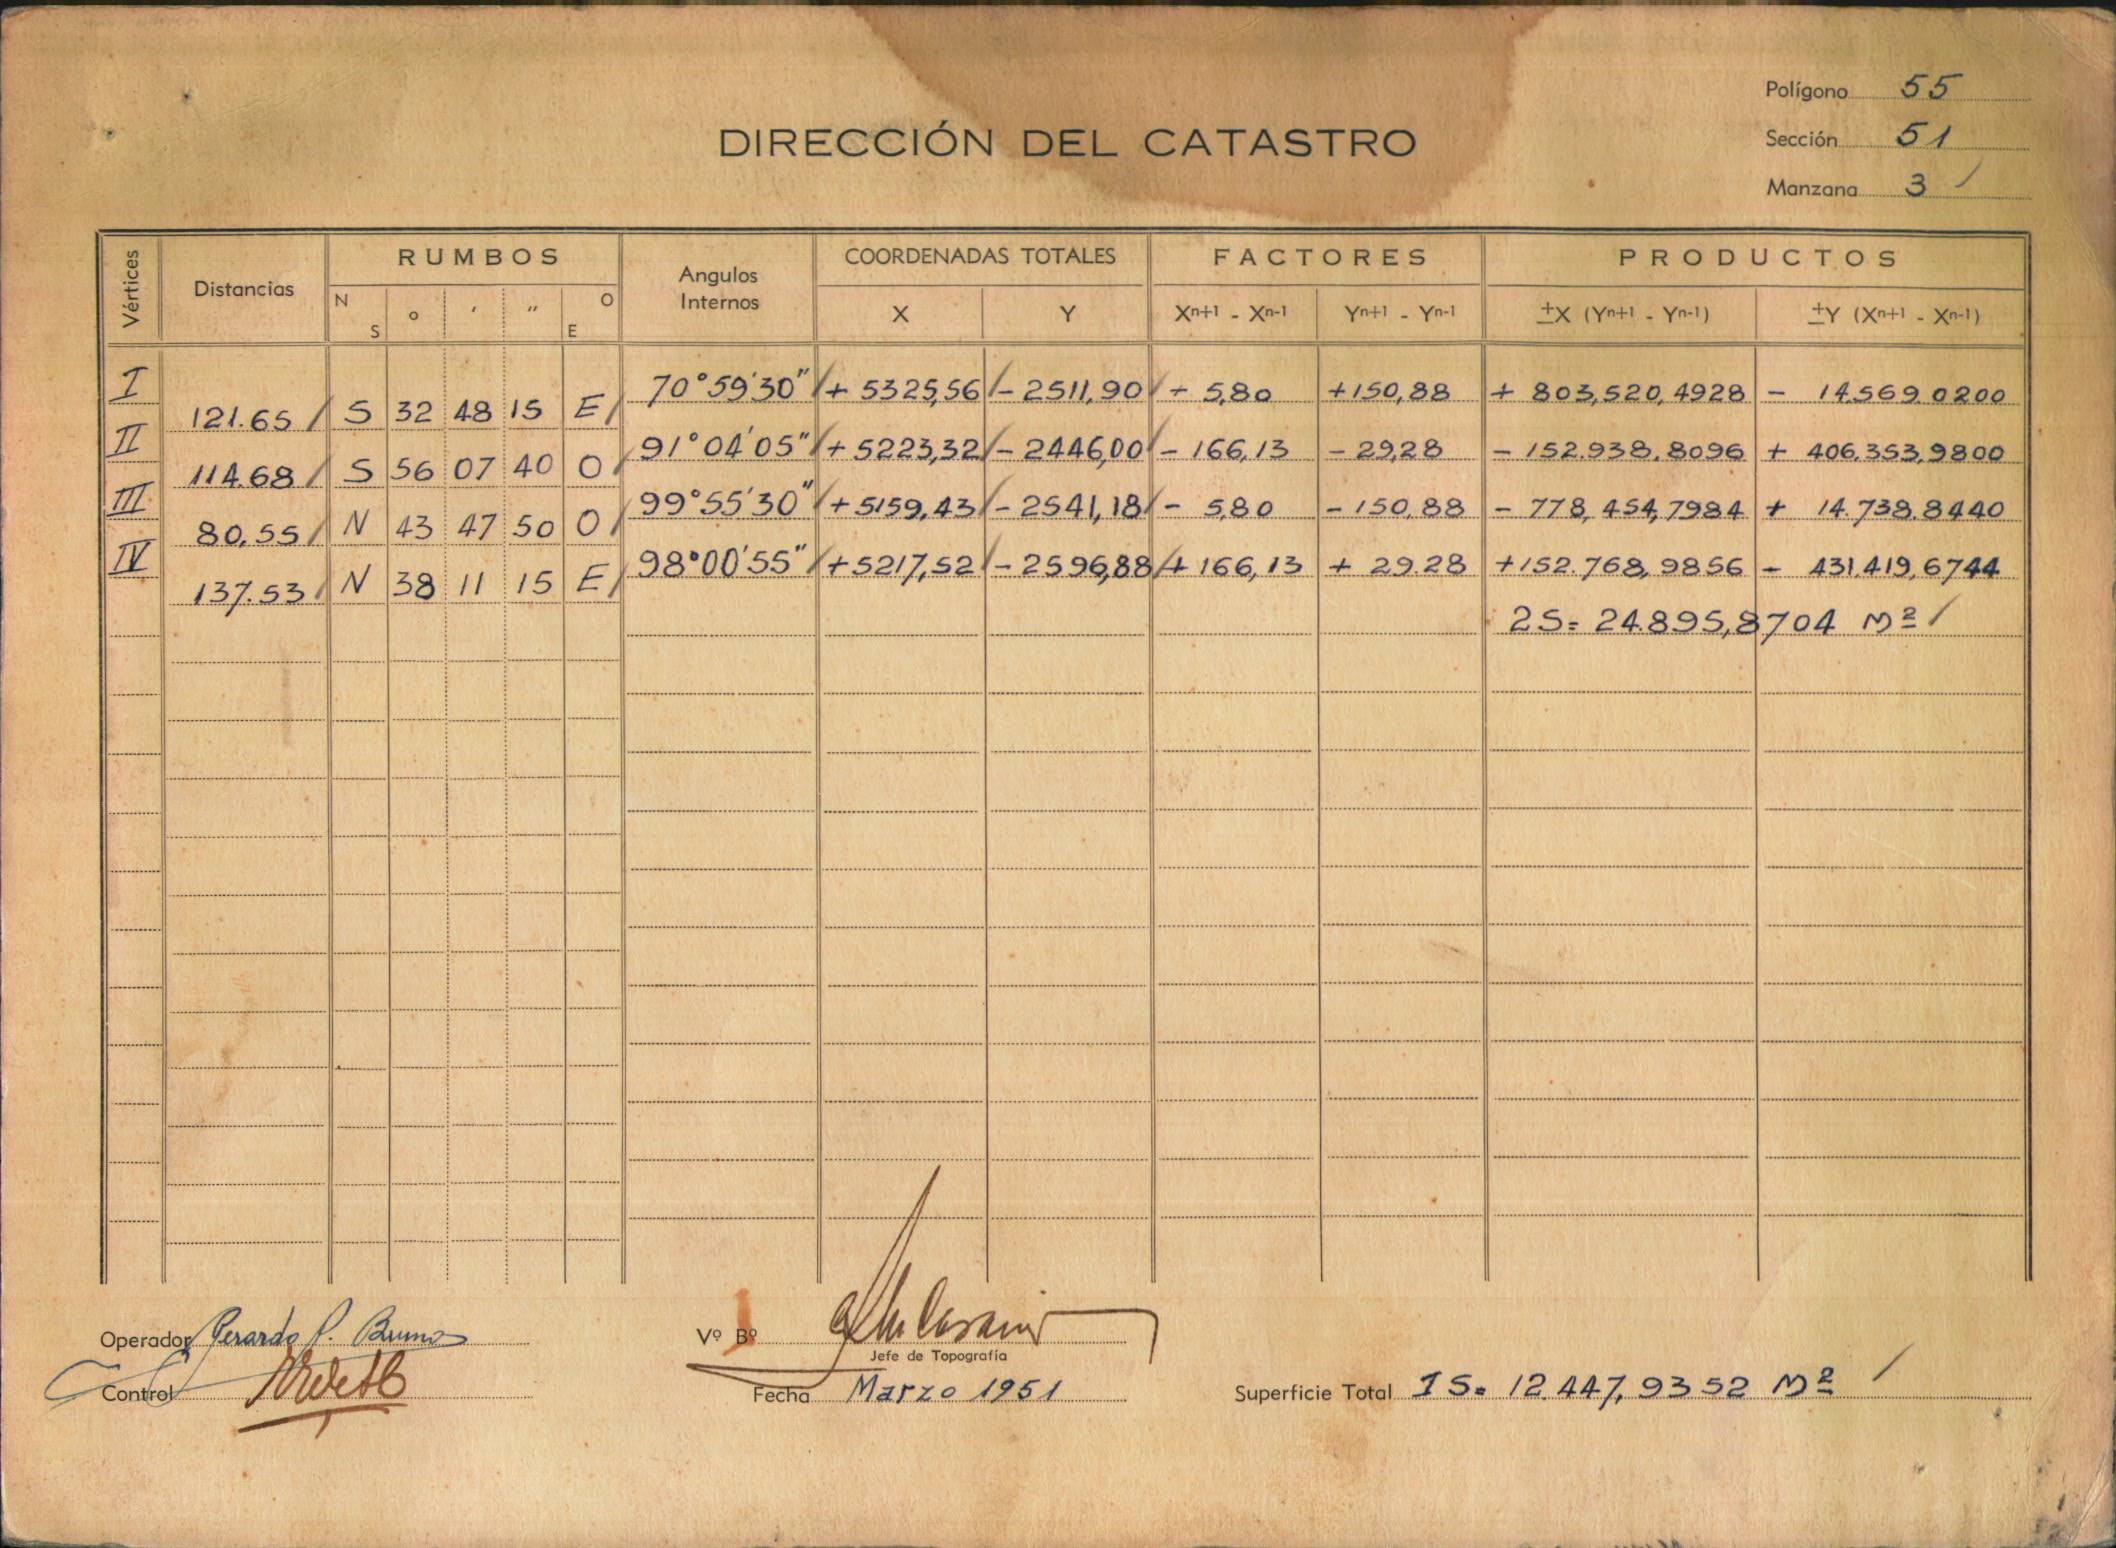 Polígono 55
DIRECCIÓN DEL CATASTRO
Sección 51
Manzana 3
Vértices Distancias RUMBOS Angulos Internos COORDENADAS TOTALES FACTORES PRODUCTOS
N S ° ' " O E X Y Xn+1 - Xn-1 Yn+1 - Yn-1 ±X (Yn+1 - Yn-1) ±Y (Xn+1 - Xn-1)
I 70°59'30" + 5325,56 - 2511,90 + 5,80 +150,88 + 803,520,4928 - 14.569.0200
121.65 S 32 48 15 E
II 91°04'05" + 5223,32 - 2446,00 - 166,13 - 29,28 - 152.938.8096 + 406.353,9800
114.68 S 56 07 40 O
III 99°55'30" + 5159,43 - 2541,18 - 5,80 - 150,88 - 778,454,7984 + 14.738.8440
80,55 N 43 47 50 O
IV 98°00'55" + 5217,52 - 2596,88 + 166,13 + 29.28 +152.768,9856 - 431.419,6744
137.53 N 38 11 15 E
2S= 24.895,8704 M²
Operador Gerardo P. Bruno
Vº Bº
Jefe de Topografía
Control
Fecha Marzo 1951
Superficie Total 1S= 12.447,9352 M²